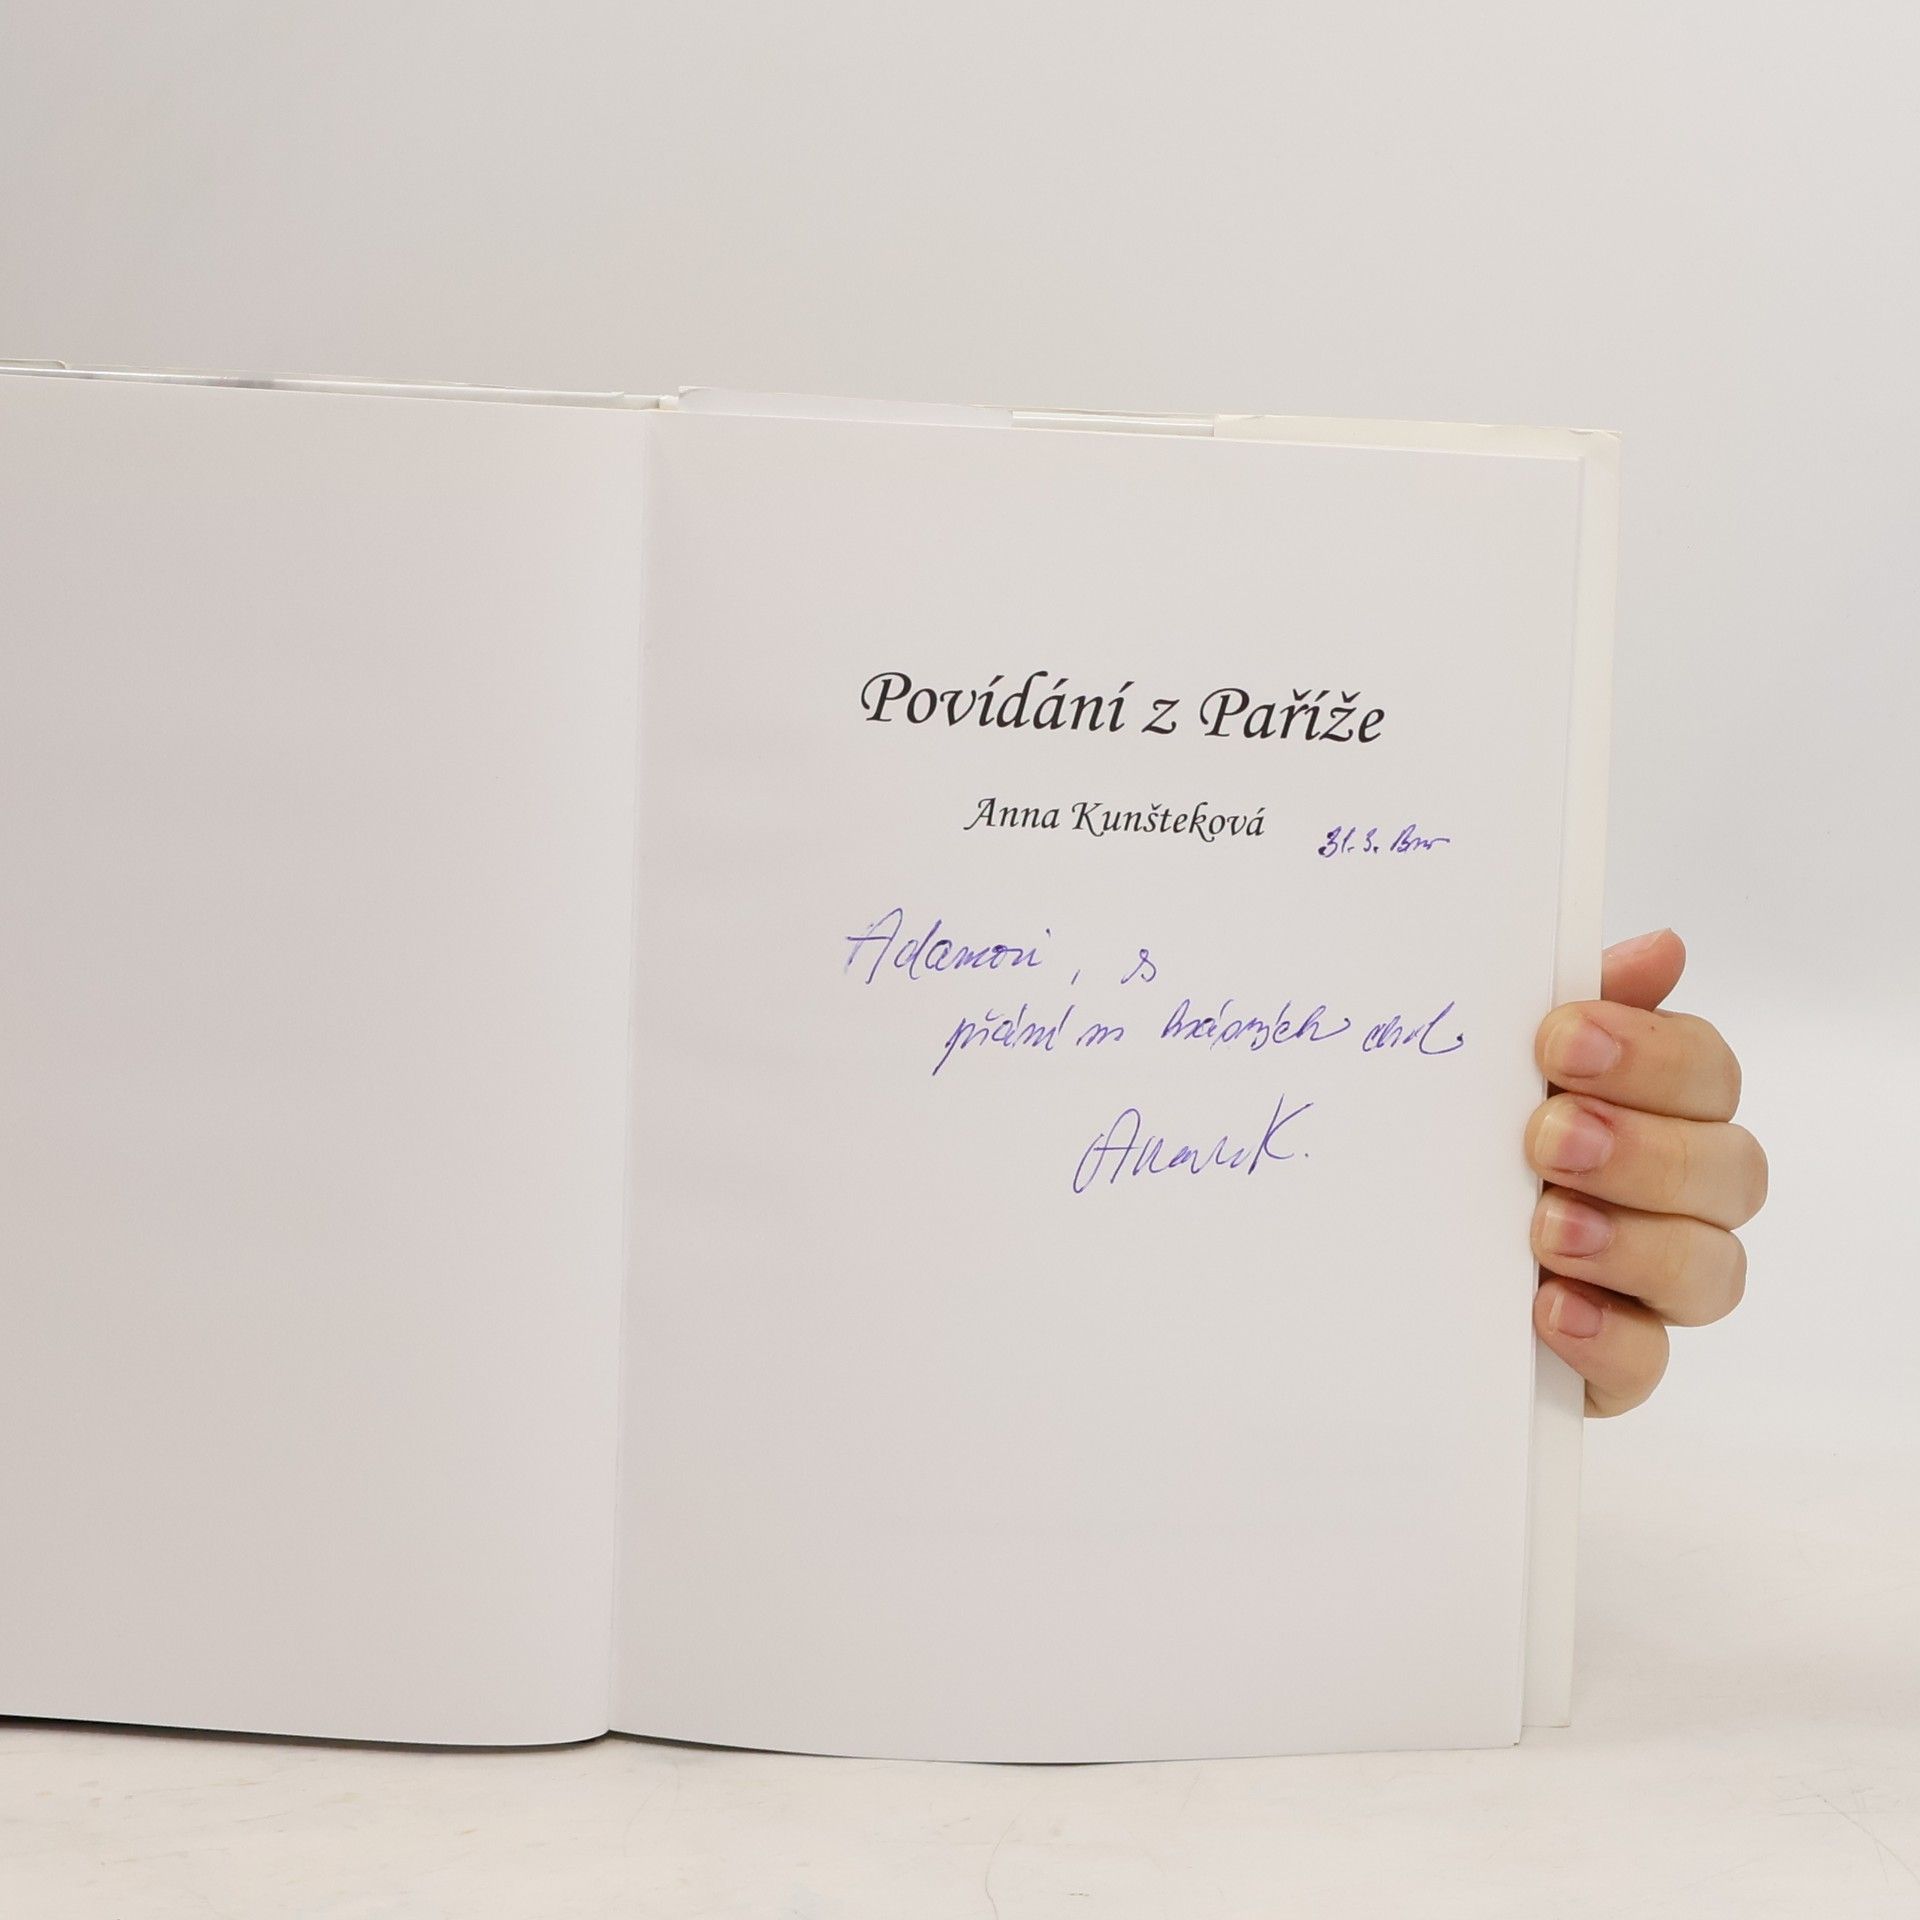 Povídání z Paříže
Anna Kunšteková
31. 3. Brno
Adamovi, s
přáním krásných chvil.
Anna K.